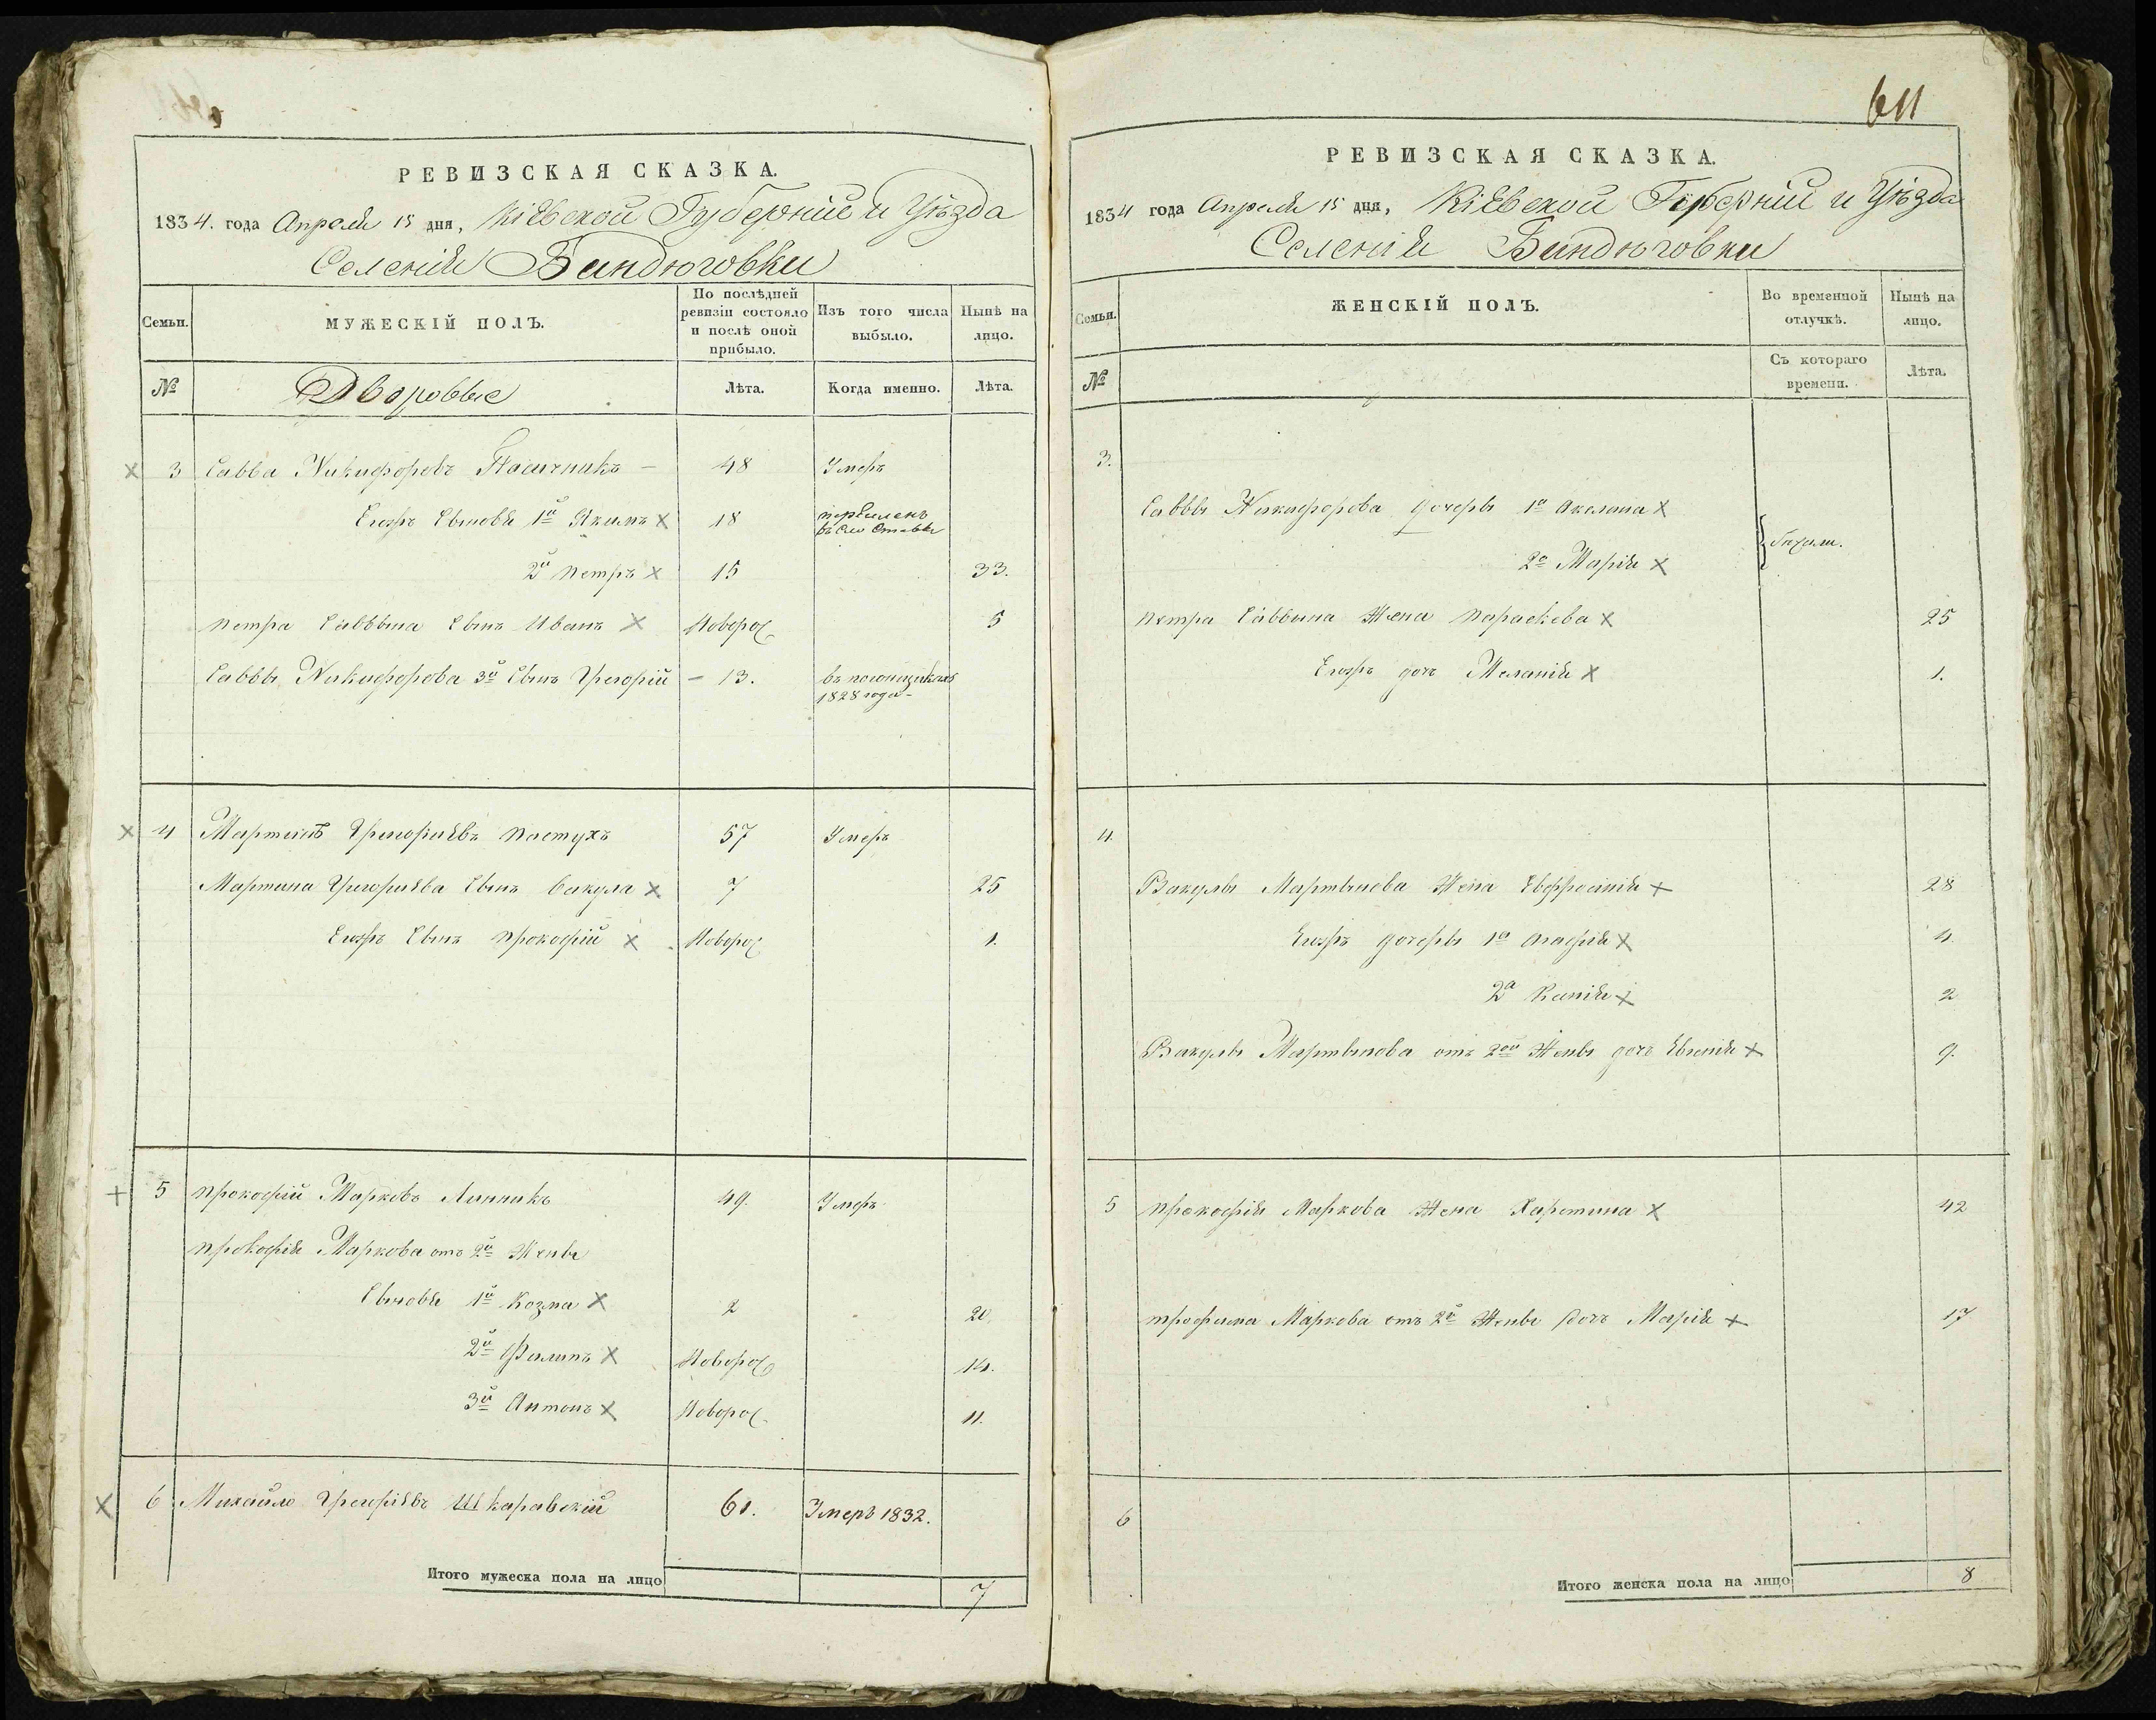 РЕВИЗСКАЯ СКАЗКА.
1834. года Апреля 15 дня, Кіевской Губерніи и Уѣзда
Селенія Биндюговки
Семьи.
МУЖЕСКІЙ ПОЛЪ.
По послѣдней ревизіи состояло и послѣ оной прибыло.
Изъ того числа выбыло.
Нынѣ на лицо.
№
Дворовые
Лѣта.
Когда именно.
Лѣта.
3 Савва Никифоровъ Пасичникъ – 48 Умеръ
Егоръ Сыновья 1й Якимъ 18
въ село
2й Петръ 15 33.
Петра Саввына Сынъ Иванъ Новорож 5
Саввы Никифорова 3й Сынъ Григорій – 13.
1828 года –
4 Мартинъ Григоріевъ Пастухъ 57 Умеръ
Мартина Григоріева Сынъ Вакула 7 25
Егоръ Сынъ Прокофій Новорож 1.
5 Прокофій Марковъ Линникъ 49. Умеръ
Прокофія Маркова отъ 2й Жены
Сыновья 1й Козма 2 20.
2й Филипъ Новорож 14.
3й Антонъ Новорож. 11.
6 Михайло Григоріевъ Шкаравскій 61. Умеръ 1832.
Итого мужеска пола на лицо 7
611
РЕВИЗСКАЯ СКАЗКА.
1834 года Апреля 15 дня, Кіевской Губерніи и Уѣзда
Селенія Биндюговки
Семьи.
ЖЕНСКІЙ ПОЛЪ.
Во временной отлучкѣ.
Нынѣ на лицо.
№
Съ котораго времени.
Лѣта.
3.
Саввы Никифорова дочеры 1а
2а Марія
Петра Саввина Жена Параскева 25
Егоръ дочъ Меланія 1.
4.
Вакулы Мартынова Жена Евфросинія 28
Егоръ дочеры 1а Агафія 4.
2а Ксенія 2
Вакулы Мартынова отъ 2ой Жены дочъ Евгенія 9.
5 Прокофія Маркова Жена Харитина 42
Трофима Маркова отъ 2й Жены дочъ Марія 17
6
Итого женска пола на лицо 8